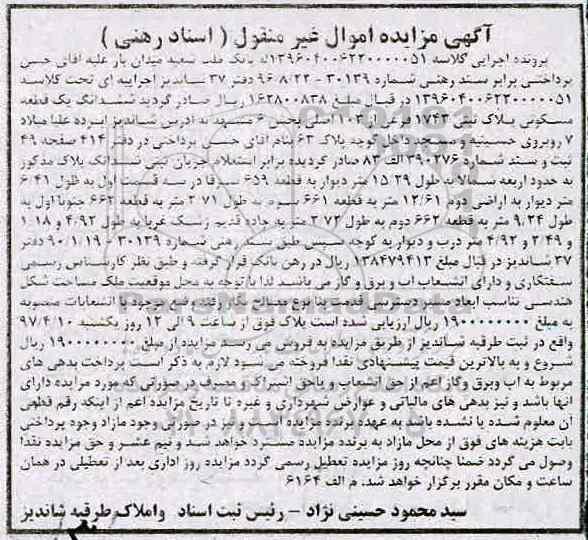 آگهی مزایده اموال غیر منقول ( اسناد رهنی )
پرونده اجرایی کلاسه ۱۳۹۶۰۴۰۰۶۲۲۰۰۰۰۰۵۱له بانک ملت شعبه میدان بار علیه آقای حسن
پرداختی برابر سند رهنی شماره ۳۰۱۳۹ - ۹۶/۸/۲۲ دفتر ۳۷ شاندیز اجراییه ای تحت کلاسه
۱۳۹۶۰۴۰۰۶۲۲۰۰۰۰۰۵۱ در قبال مبلغ ۱۶۲۸۰۰۸۳۸ ریال صادر گردید ششدانگ یک قطعه
مسکونی پلاک ثبتی ۱۷۴۳ فرعی از ۱۰۳ اصلی بخش ۶ مشهد به آدرس شاندیز ابرده علیا میلاد
۷ روبروی حسینیه و مسجد داخل کوچه پلاک ۶۳ بنام آقای حسن پرداختی در دفتر ۴۱۴ صفحه ۴۹
ثبت و سند شماره ۳۹۰۲۷۶ الف ۸۳ صادر گردیده برابر استعلام جریان ثبتی ششدانگ پلاک مذکور
به حدود اربعه شمالا به طول ۱۵/۲۹ متر دیوار به قطعه ۶۵۹ شرقا در سه قسمت اول به طول ۶/۴۱
متر دیوار به اراضی دوم ۱۲/۶۱ متر به قطعه ۶۶۱ سوم به طول ۲/۷۱ متر به قطعه ۶۶۲ جنوبا اول به
طول ۹/۲۴ متر به قطعه ۶۶۲ دوم به طول ۲/۷۲ متر به جاده قدیم زشک غربا به طول ۴/۹۲ و ۱/۱۸
و ۲/۴۹ و ۴/۹۲ متر درب و دیوار به کوچه سپس طبق سند رهنی شماره ۳۰۱۳۹ - ۹۰/۱/۱۹ دفتر
۳۷ شاندیز در قبال مبلغ ۱۳۸۴۷۹۴۱۳ ریال در رهن بانک قرار گرفته و طبق نظر کارشناس رسمی
سفتکاری و دارای انشعاب آب و برق و گاز می باشد لذا با توجه به محل موقعیت ملک مساحت شکل
هندسی تناسب ابعاد مسیر دسترسی قدمت بنا نوع مصالح بکار رفته وضع موجود با انشعابات منصوبه
به مبلغ ۱۹۰۰۰۰۰۰۰۰ ریال ارزیابی شده است پلاک فوق از ساعت ۹ الی ۱۲ روز یکشنبه ۹۷/۴/۱۰
واقع در ثبت طرقبه شاندیز از طریق مزایده به فروش می رسد مزایده از مبلغ ۱۹۰۰۰۰۰۰۰۰ ریال
شروع و به بالاترین قیمت پیشنهادی نقدا فروخته می شود لازم به ذکر است پرداخت بدهی های
مربوط به آب وبرق وگاز اعم از حق انشعاب و یاحق اشتراک و مصرف در صورتی که مورد مزایده دارای
آنها باشد و نیز بدهی های مالیاتی و عوارض شهرداری و غیره تا تاریخ مزایده اعم از اینکه رقم قطعی
آن معلوم شده یا نشده باشد به عهده برنده مزایده است و نیز در صورتی وجود مازاد وجوه پرداختی
بابت هزینه های فوق از محل مازاد به برنده مزایده مسترد خواهد شد و نیم عشر و حق مزایده نقدا
وصول می گردد ضمنا چنانچه روز مزایده تعطیل رسمی گردد مزایده روز اداری بعد از تعطیلی در همان
ساعت و مکان مقرر برگزار خواهد شد. م الف ۶۱۶۴
سید محمود حسینی نژاد - رئیس ثبت اسناد واملاک طرقبه شاندیز